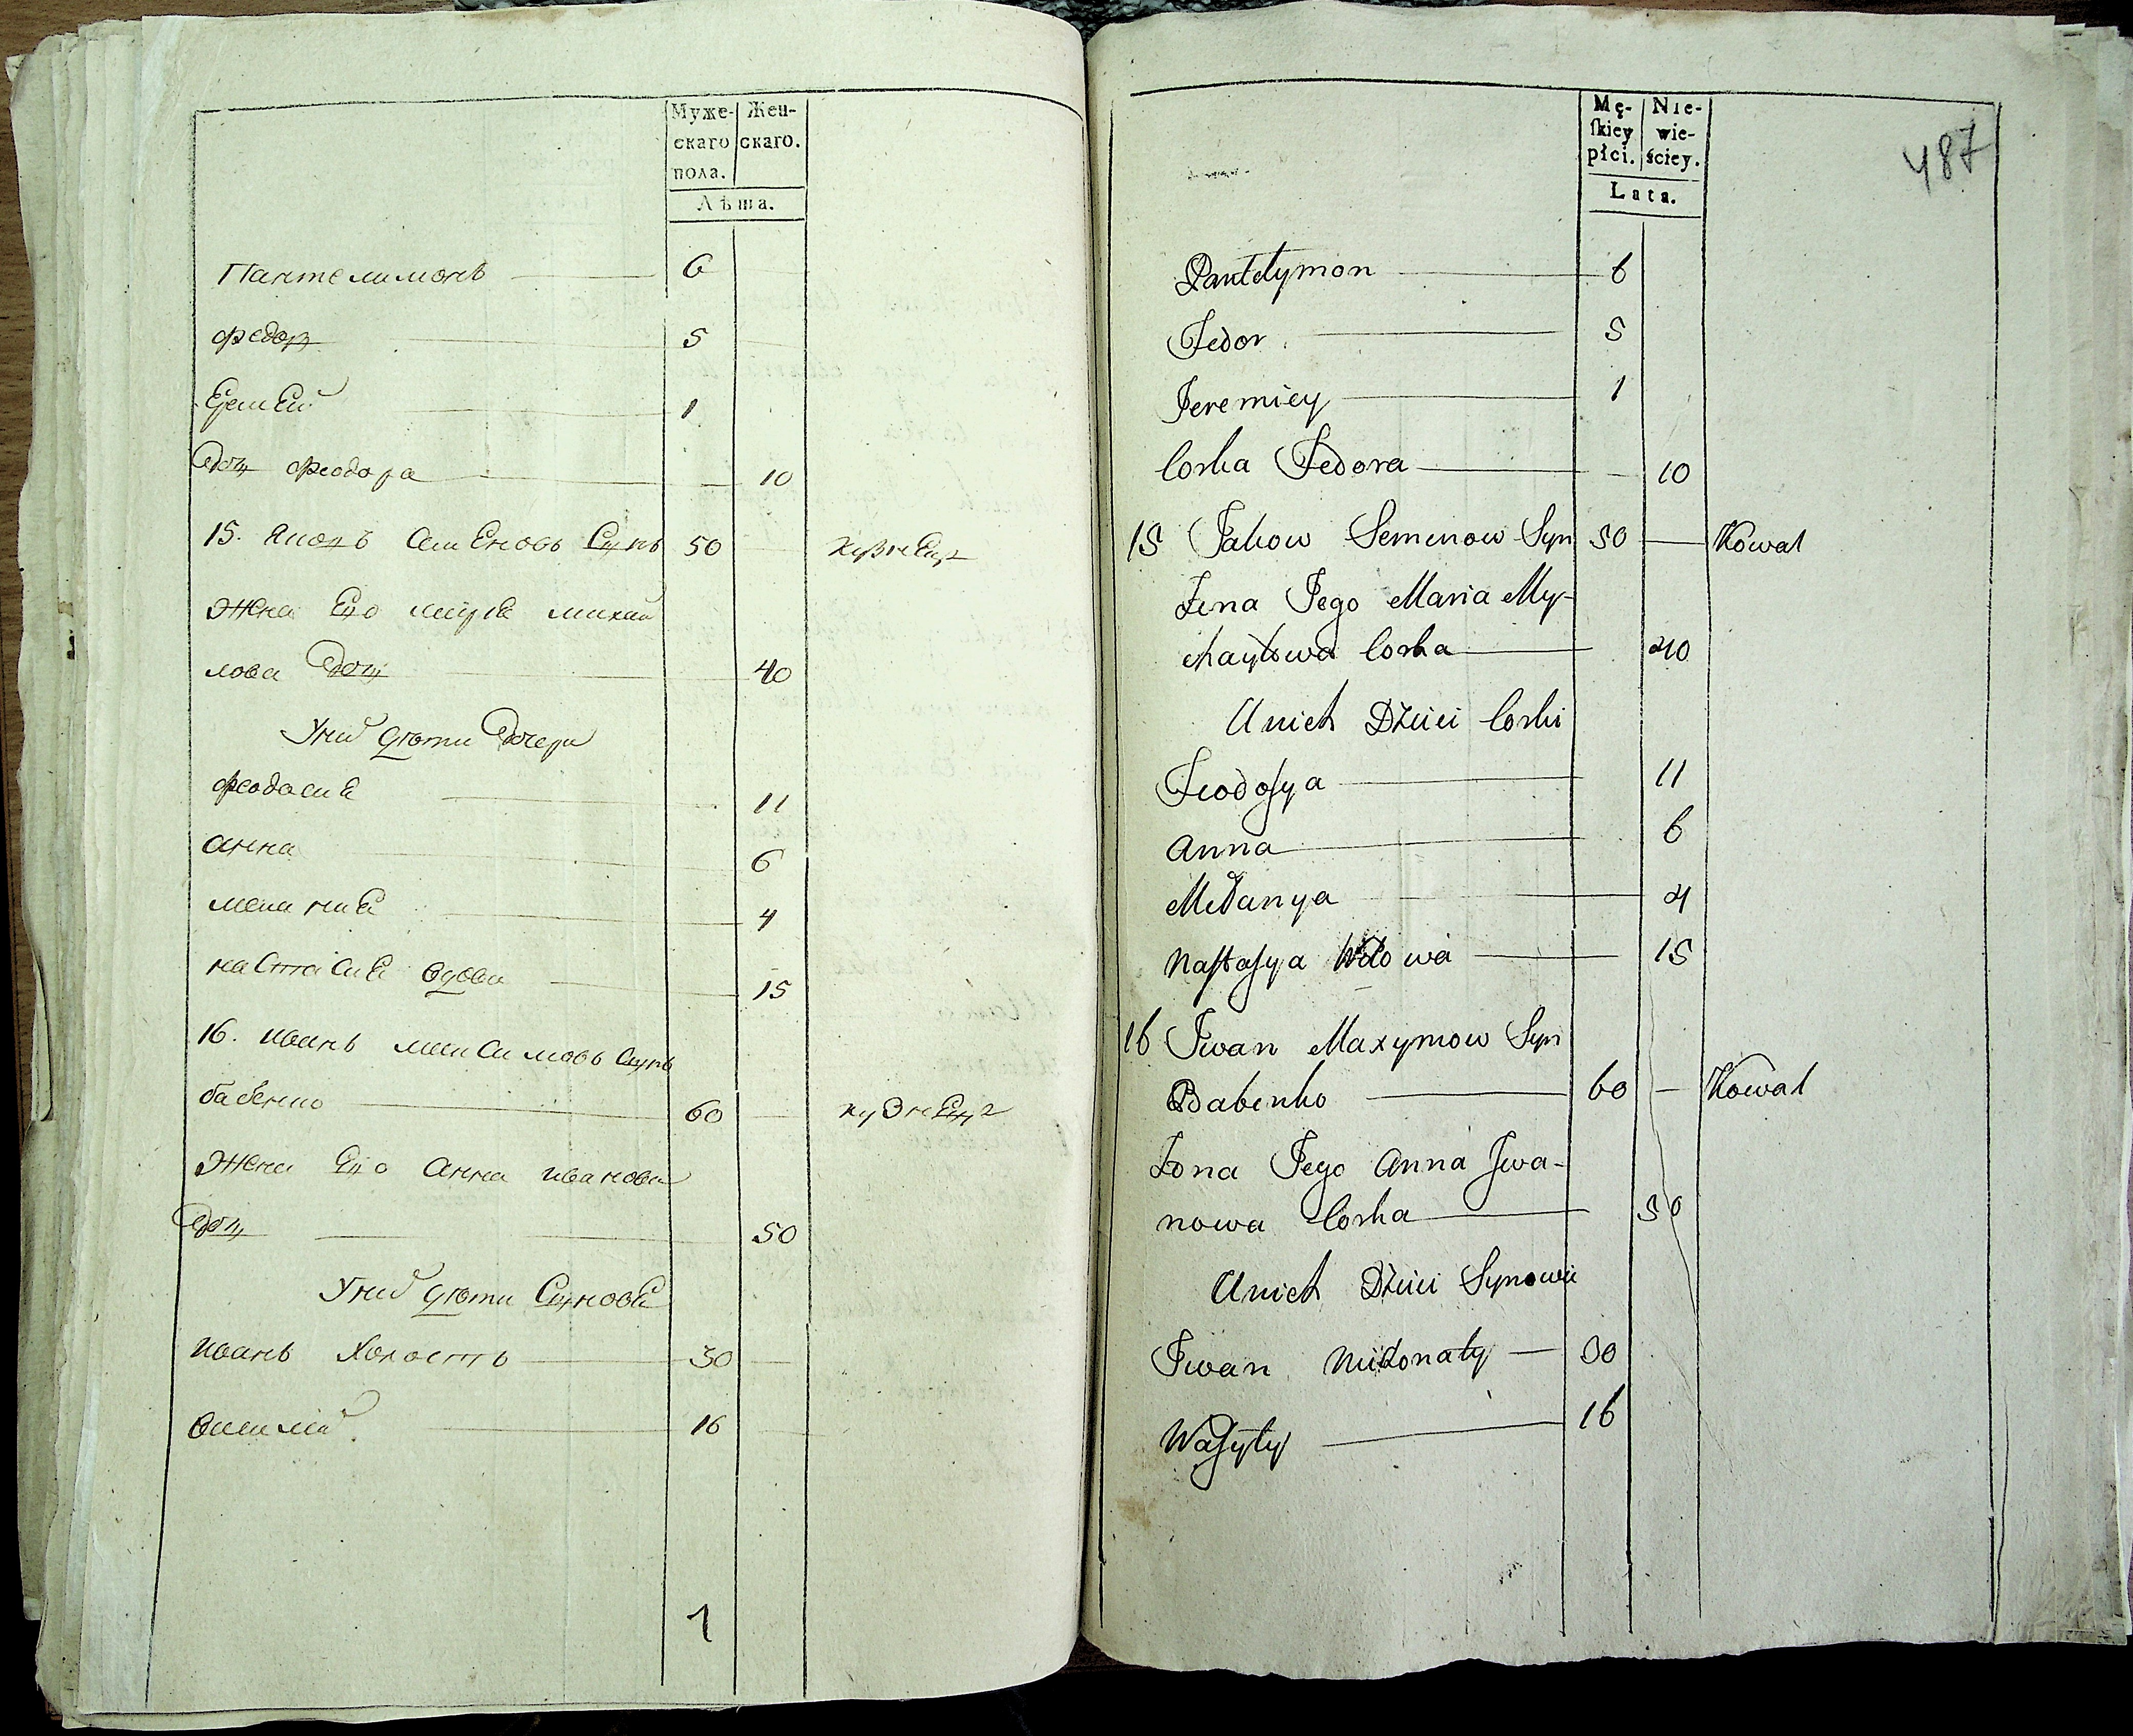 Муже-
скаго
пола.
Жен-
скаго.
Лѣта.
Пантелимонъ 6
Федоръ 5
Еремѣй 1
Дочь Феодора 10
15. Яковъ Семеновъ Сынъ 50 кузнецъ
Жена Его Марія Михай
лова Дочь 40
У них дѣти Дочери
Феодосия 11
Анна 6
Мелания 4
Настасия вдова 15
16. Иванъ Максимовъ Сынъ
Бабенко 60 кузнецъ
Жена Его Анна Иванова
Дочь 50
У них дѣти Сыновья
Иванъ Холостъ 30
Василий 16
1
Mę-
skiey
płci.
Nie-
wie-
ściey.
Lata.
487
Pantelymon 6
Fedor 5
Jeremiey 1
Corka Fedora 10
15 Jakow Semenow Syn 50 Kowal
Żena Jego Maria My-
chayłowa Corka 40
U nich Dzieci Corki
Feodosya 11
Anna 6
Melanya 4
Nastasya Wdowa 15
16 Jwan Maxymow Syn
Babenko 60 Kowal
Żona Jego Anna Jwa-
nowa Corka 50
U nich Dzieci Synowie
Jwan Nieżonaty 30
Wasyly 16